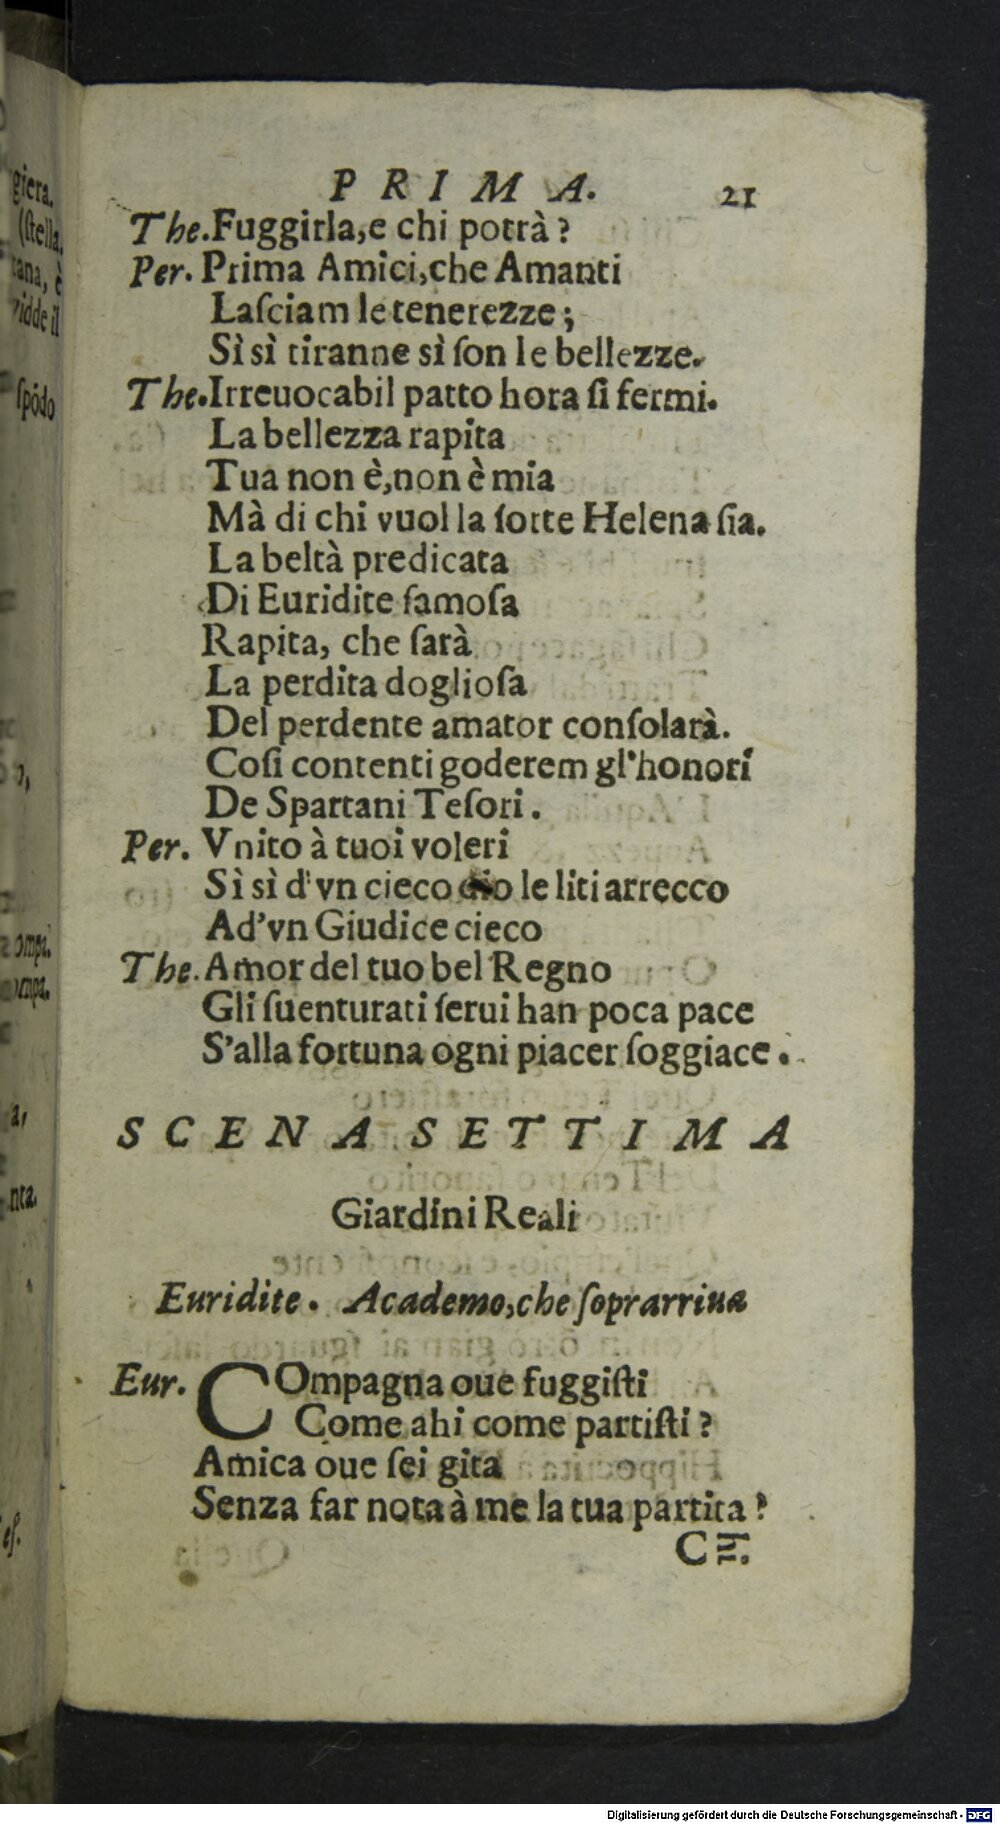 PRIMA. 21
The. Fuggirla, e chi potrà?
Per. Prima Amici, che Amanti
Laſciam le tenerezze;
Sì sì tiranne sì ſon le bellezze.
The. Irreuocabil patto hora ſi fermi.
La bellezza rapita
Tua non è, non è mia
Mà di chi vuol la ſorte Helena ſia.
La beltà predicata
Di Euridite famoſa
Rapita, che ſarà
La perdita doglioſa
Del perdente amator conſolarà.
Coſi contenti goderem gl'honori
De Spartani Teſori.
Per. Vnito à tuoi voleri
Sì sì d'vn cieco dio le liti arrecco
Ad'vn Giudice cieco
The. Amor del tuo bel Regno
Gli ſuenturati ſerui han poca pace
S'alla fortuna ogni piacer ſoggiace.
SCENA SETTIMA
Giardini Reali
Euridite. Academo, che ſoprarriua
Eur. COmpagna oue fuggiſti
Come ahi come partiſti?
Amica oue ſei gita
Senza far nota à me la tua partita?
giera.
(ſtella.
tana, è
vidde il
ſpõdo
ompa.
ompa.
a,
nta.
eſ.
Digitalisierung gefördert durch die Deutsche Forschungsgemeinschaft - DFG